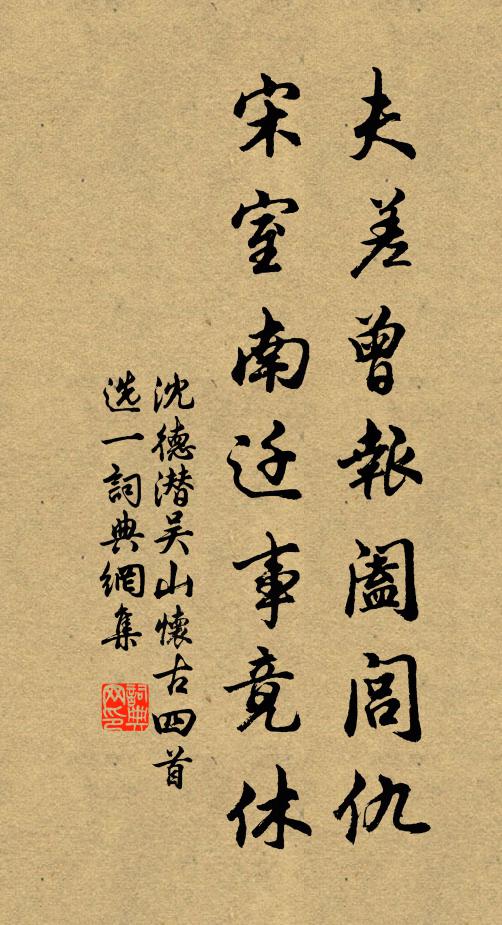 夫差曾報闔閭仇
宋室南迁事竟休
沈德潜吴山懷古四首
选一詞典網集
詞典网印